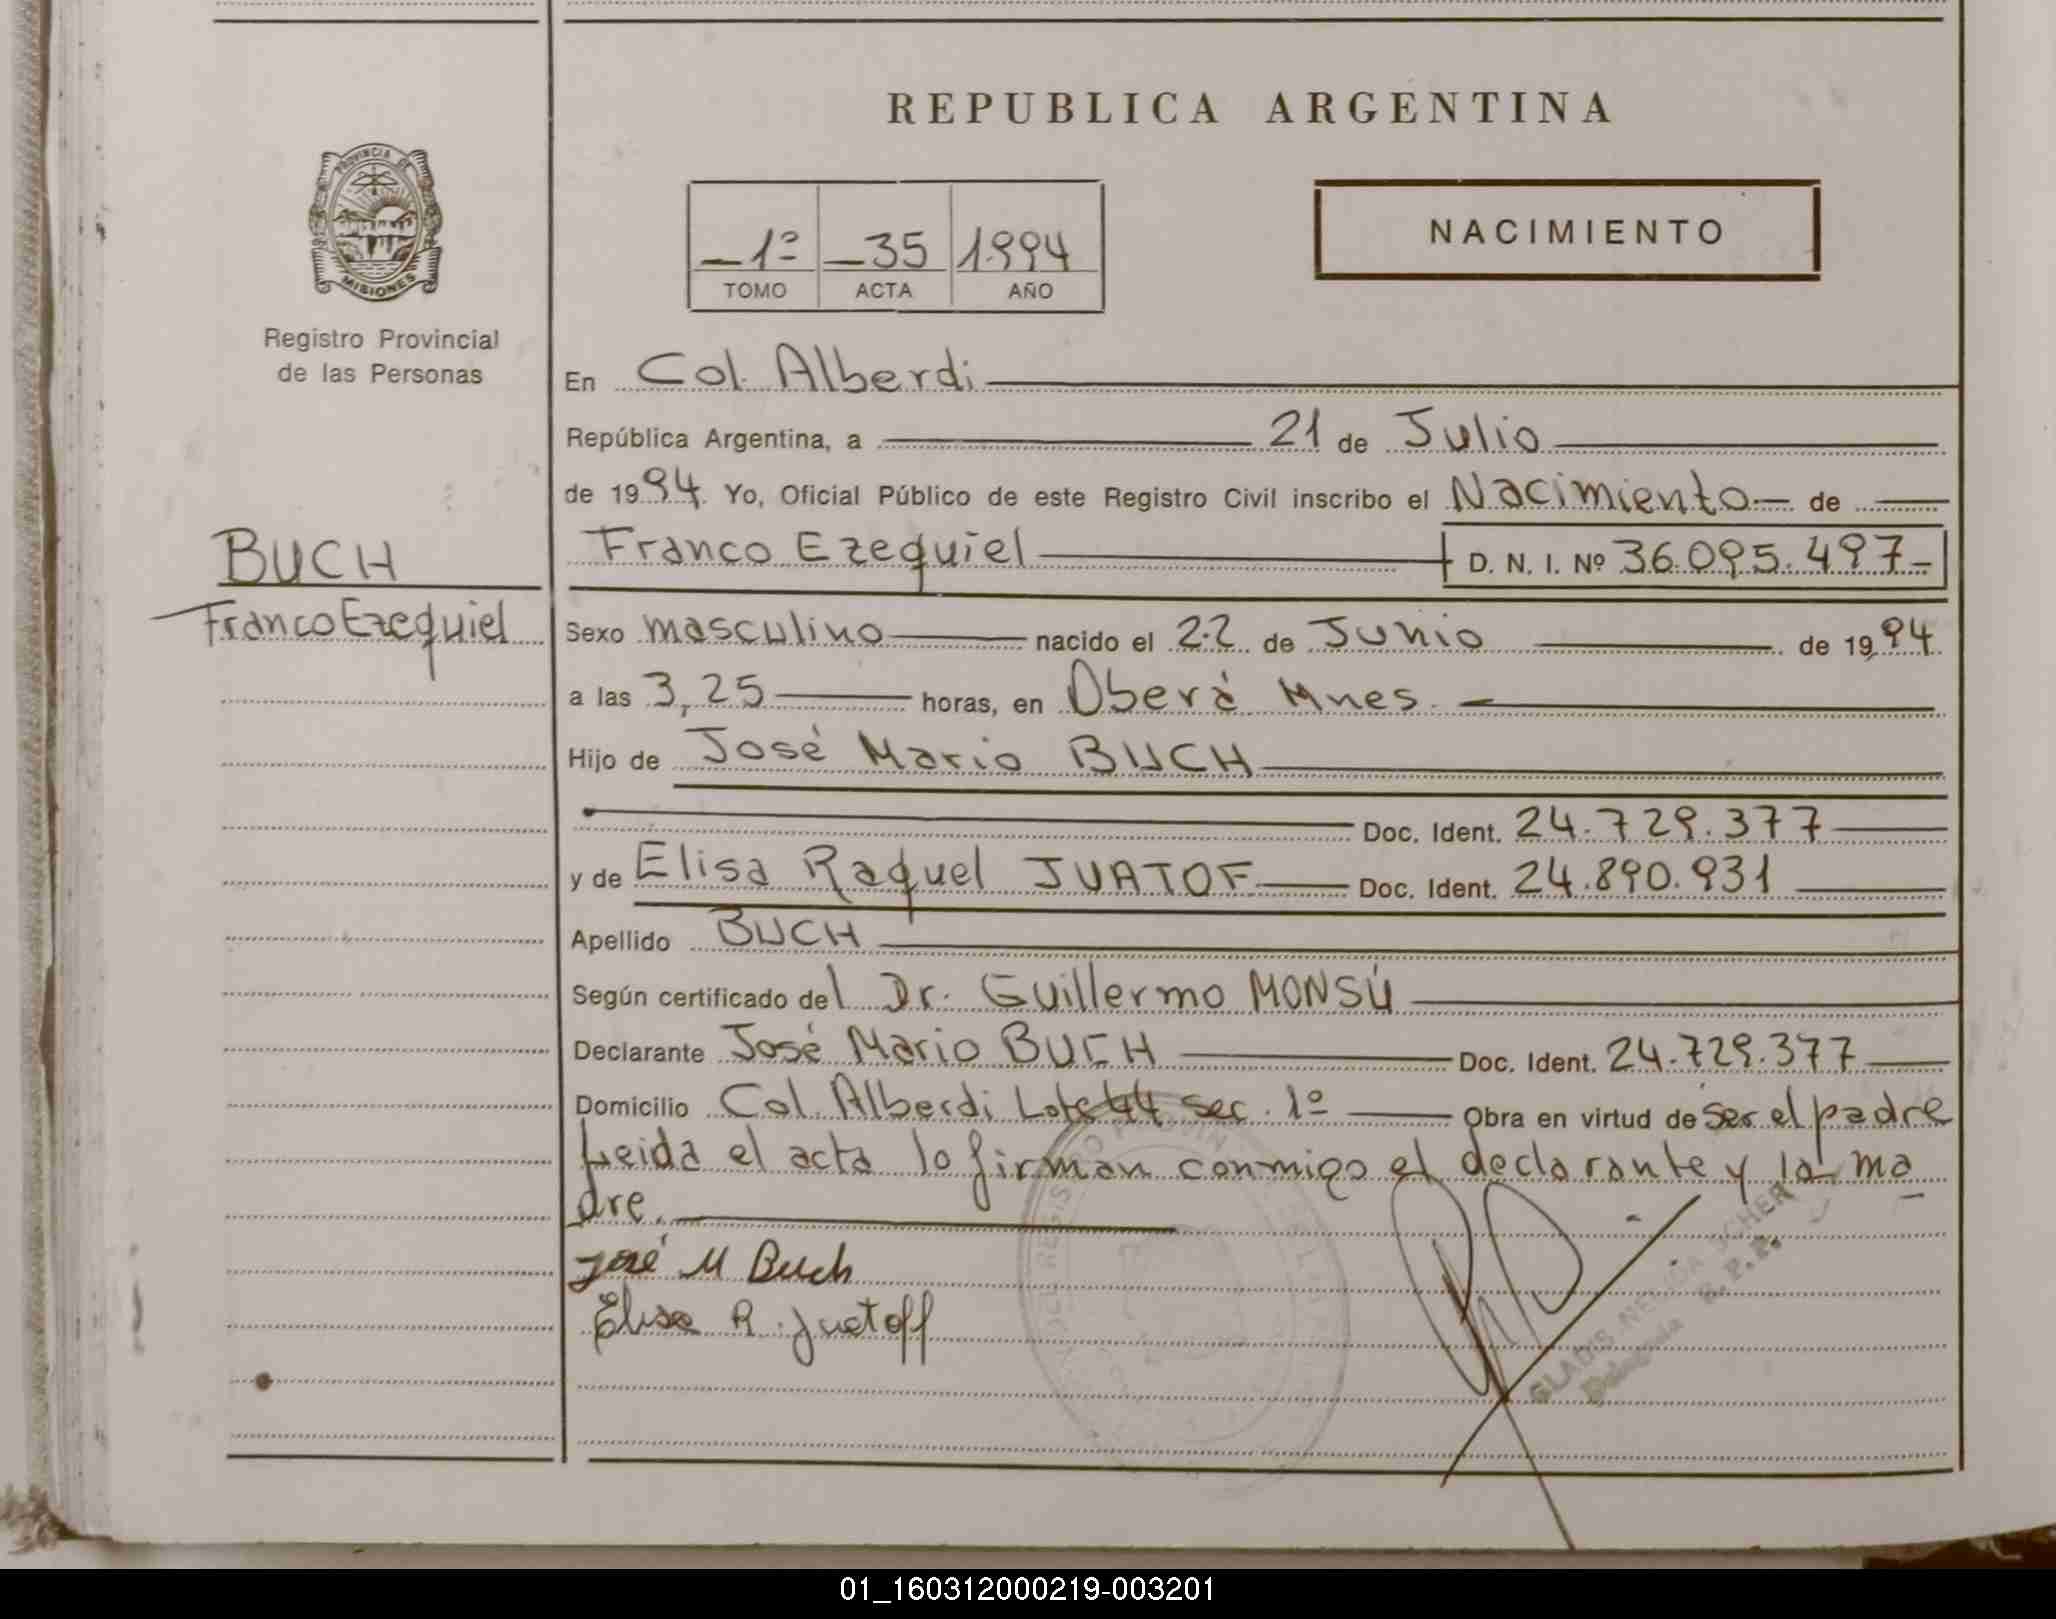 REPUBLICA ARGENTINA
PROVINCIA DE
MISIONES
Registro Provincial
de las Personas
1º 35 1994
TOMO ACTA AÑO
NACIMIENTO
En Col. Alberdi
República Argentina, a 21 de Julio
de 1994. Yo, Oficial Público de este Registro Civil inscribo el Nacimiento de
BUCH
Franco Ezequiel D. N. I. Nº 36.095.497
Franco Ezequiel
Sexo masculino nacido el 22 de Junio de 1994
a las 3,25 horas, en Oberá Mnes.
Hijo de José Mario BUCH
Doc. Ident. 24.729.377
y de Elisa Raquel JUATOF Doc. Ident. 24.890.931
Apellido BUCH
Según certificado del Dr. Guillermo MONSÚ
Declarante José Mario BUCH Doc. Ident. 24.729.377
Domicilio Col. Alberdi Lote 44 sec. 1º Obra en virtud de ser el padre
Leida el acta lo firman conmigo el declarante y la ma
dre.
José M Buch
Elisa R. Juatoff
GLADIS
Delegada R. P. P.
01_160312000219-003201